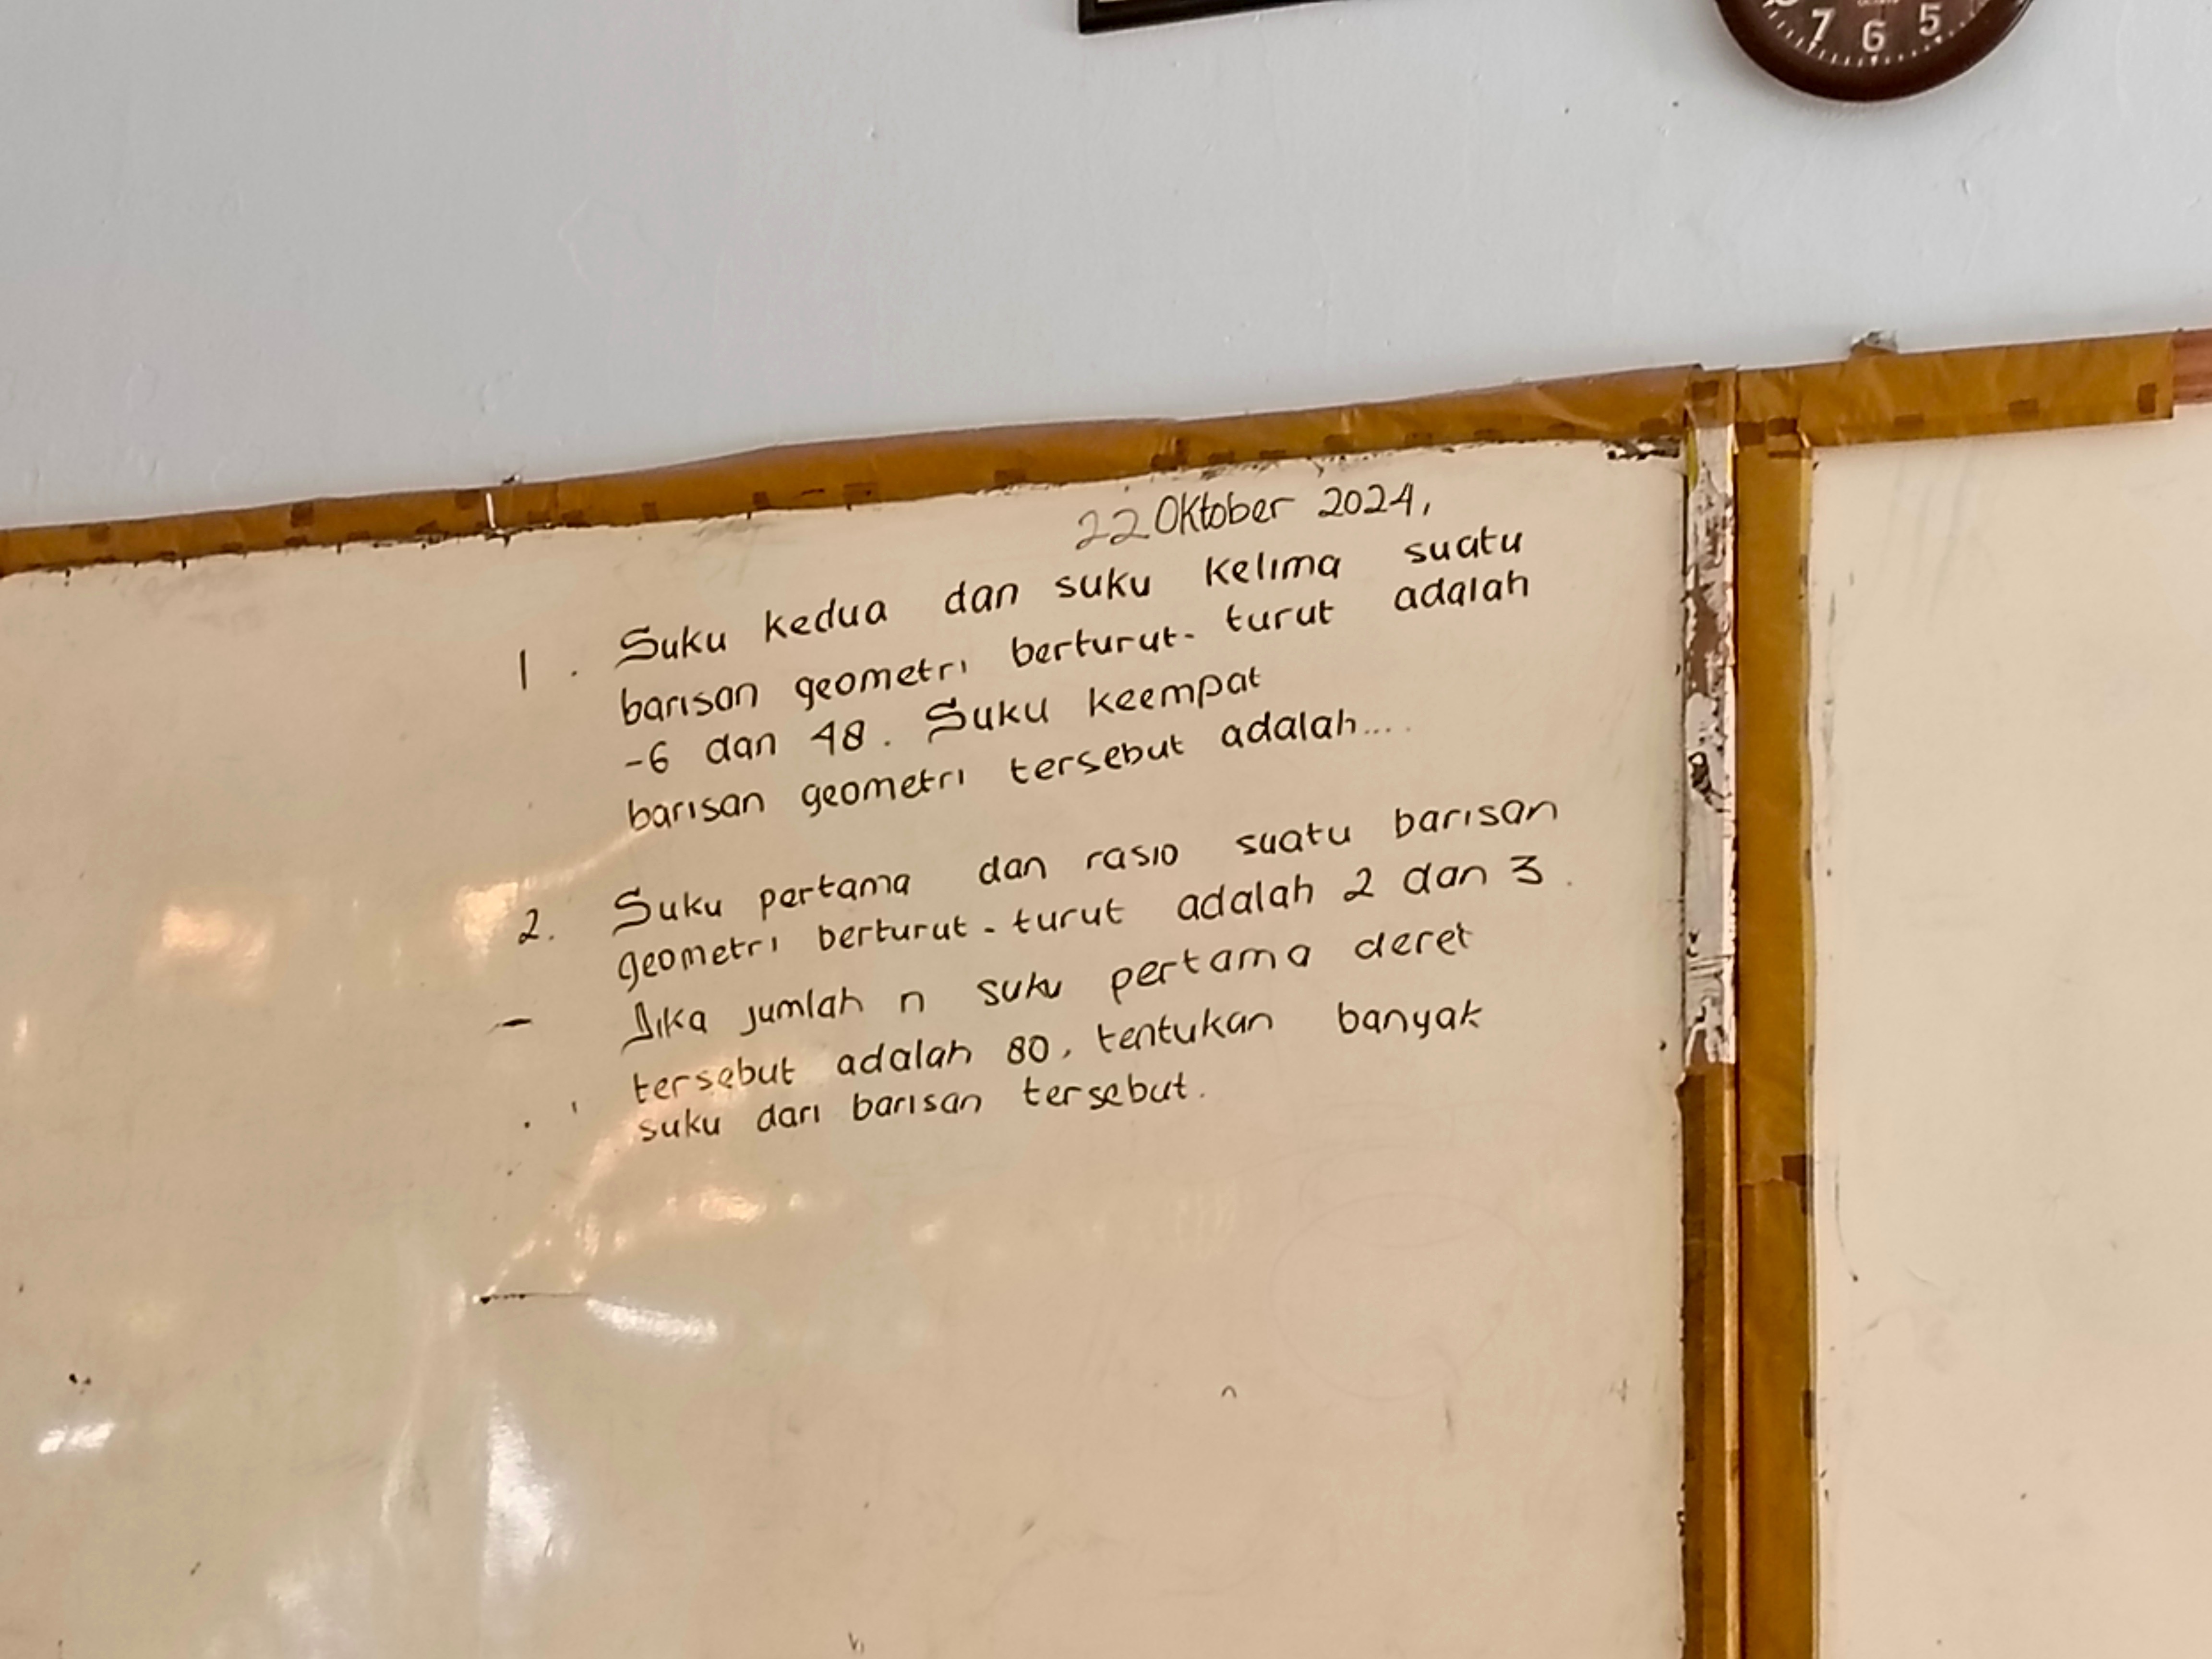 7 6 5
22 Oktober 2024,
1. Suku kedua dan suku kelima suatu
barisan geometri berturut-turut adalah
-6 dan 48. Suku keempat
barisan geometri tersebut adalah....
2. Suku pertama dan rasio suatu barisan
geometri berturut-turut adalah 2 dan 3.
Jika jumlah n suku pertama deret
tersebut adalah 80, tentukan banyak
suku dari barisan tersebut.